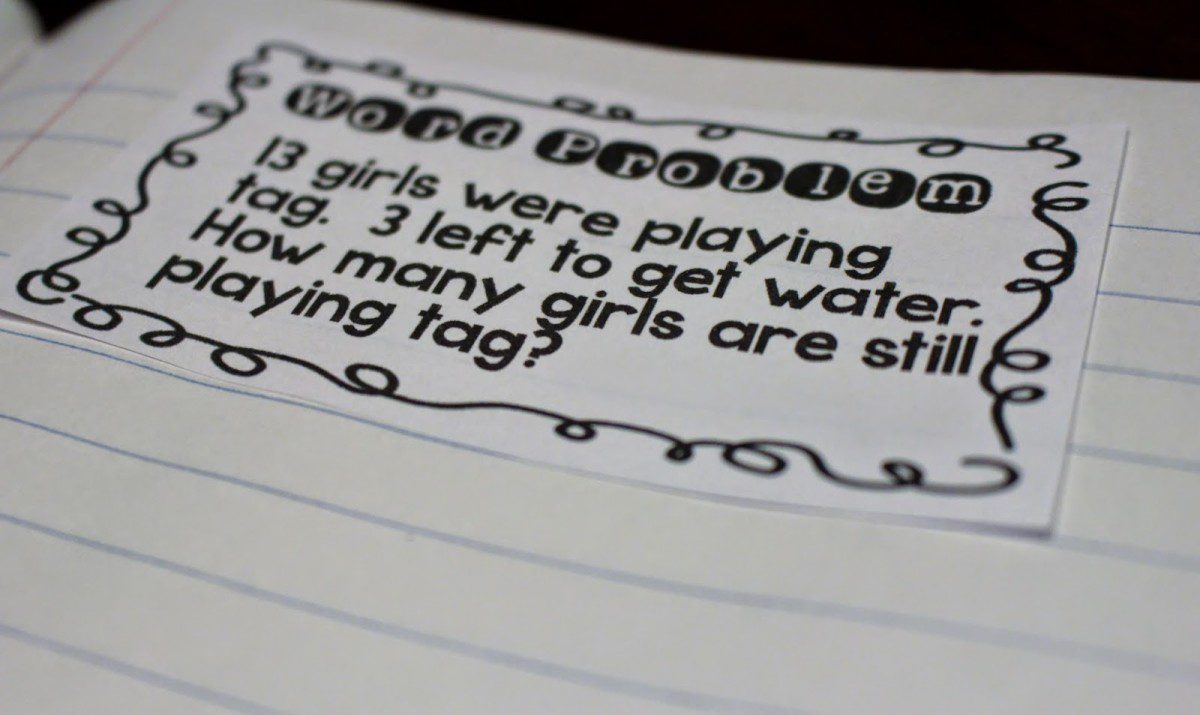 Word Problem
13 girls were playing
tag. 3 left to get water.
How many girls are still
playing tag?